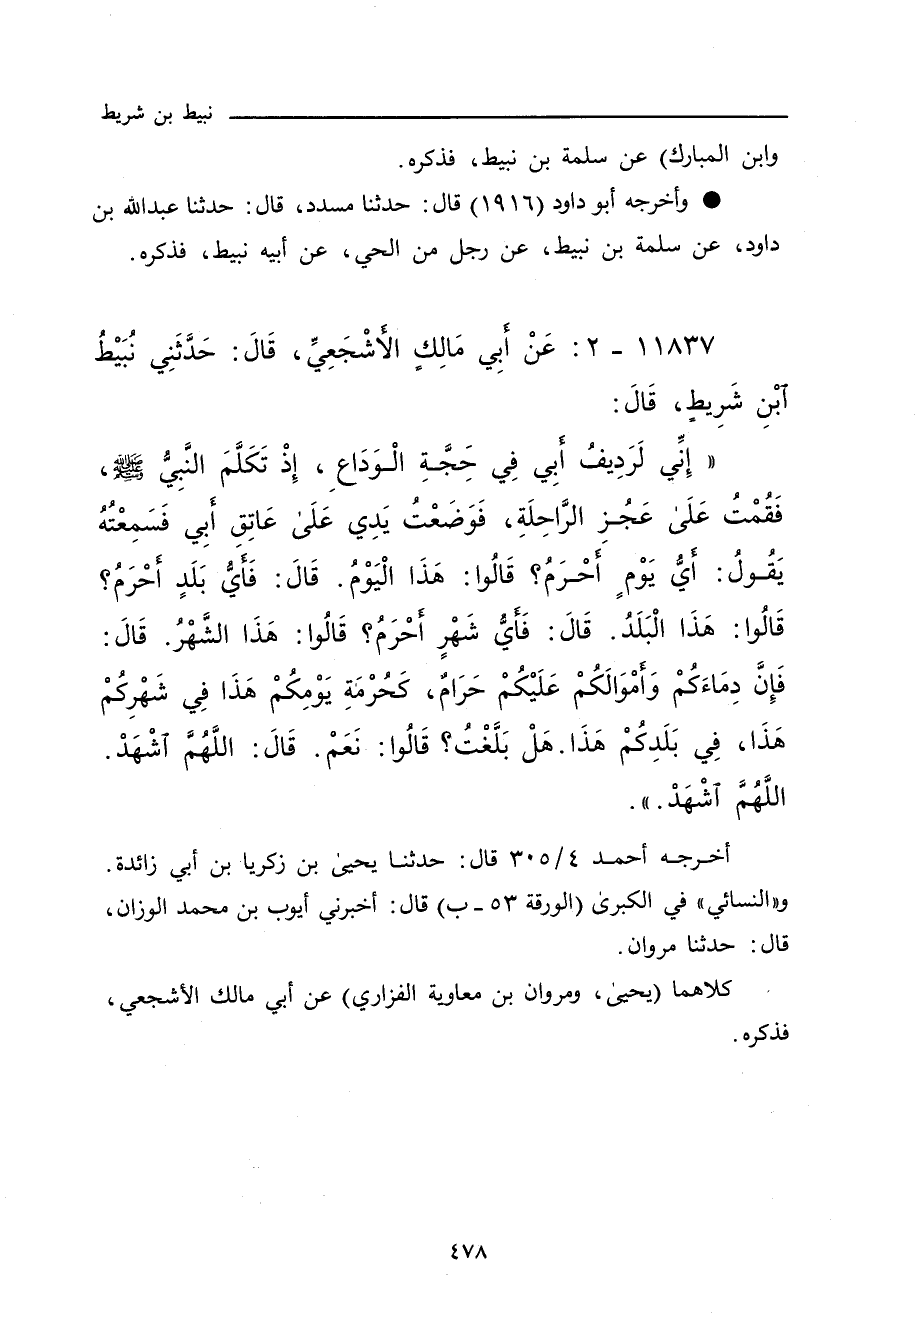 نبيط بن شريط
وابن المبارك) عن سلمة بن نبيط، فذكره.
● وأخرجه أبو داود (١٩١٦) قال: حدثنا مسدد، قال: حدثنا عبدالله بن
داود، عن سلمة بن نبيط، عن رجل من الحي، عن أبيه نبيط، فذكره.
١١٨٣٧ ـ ٢: عَنْ أَبِي مَالِكٍ الأَشْجَعِيِّ، قَالَ: حَدَّثَنِي نُبَيْطُ
ٱبْنِ شَرِيطٍ، قَالَ:
« إِنِّي لَرَدِيفُ أَبِي فِي حَجَّةِ الْوَدَاعِ، إِذْ تَكَلَّمَ النَّبِيُّ ﷺ،
فَقُمْتُ عَلَىٰ عَجُزِ الرَّاحِلَةِ، فَوَضَعْتُ يَدِي عَلَىٰ عَاتِقِ أَبِي فَسَمِعْتُهُ
يَقُولُ: أَيُّ يَوْمٍ أَحْرَمُ؟ قَالُوا: هَذَا الْيَوْمُ. قَالَ: فَأَيُّ بَلَدٍ أَحْرَمُ؟
قَالُوا: هَذَا الْبَلَدُ. قَالَ: فَأَيُّ شَهْرٍ أَحْرَمُ؟ قَالُوا: هَذَا الشَّهْرُ. قَالَ:
فَإِنَّ دِمَاءَكُمْ وَأَمْوَالَكُمْ عَلَيْكُمْ حَرَامٌ، كَحُرْمَةِ يَوْمِكُمْ هَذَا فِي شَهْرِكُمْ
هَذَا، فِي بَلَدِكُمْ هَذَا. هَلْ بَلَّغْتُ؟ قَالُوا: نَعَمْ. قَالَ: اللَّهُمَّ ٱشْهَدْ.
اللَّهُمَّ ٱشْهَدْ.».
أخرجه أحمد ٣٠٥/٤ قال: حدثنا يحيىٰ بن زكريا بن أبي زائدة.
و«النسائي» في الكبرىٰ (الورقة ٥٣ ـ ب) قال: أخبرني أيوب بن محمد الوزان،
قال: حدثنا مروان.
كلاهما (يحيىٰ، ومروان بن معاوية الفزاري) عن أبي مالك الأشجعي،
فذكره.
٤٧٨